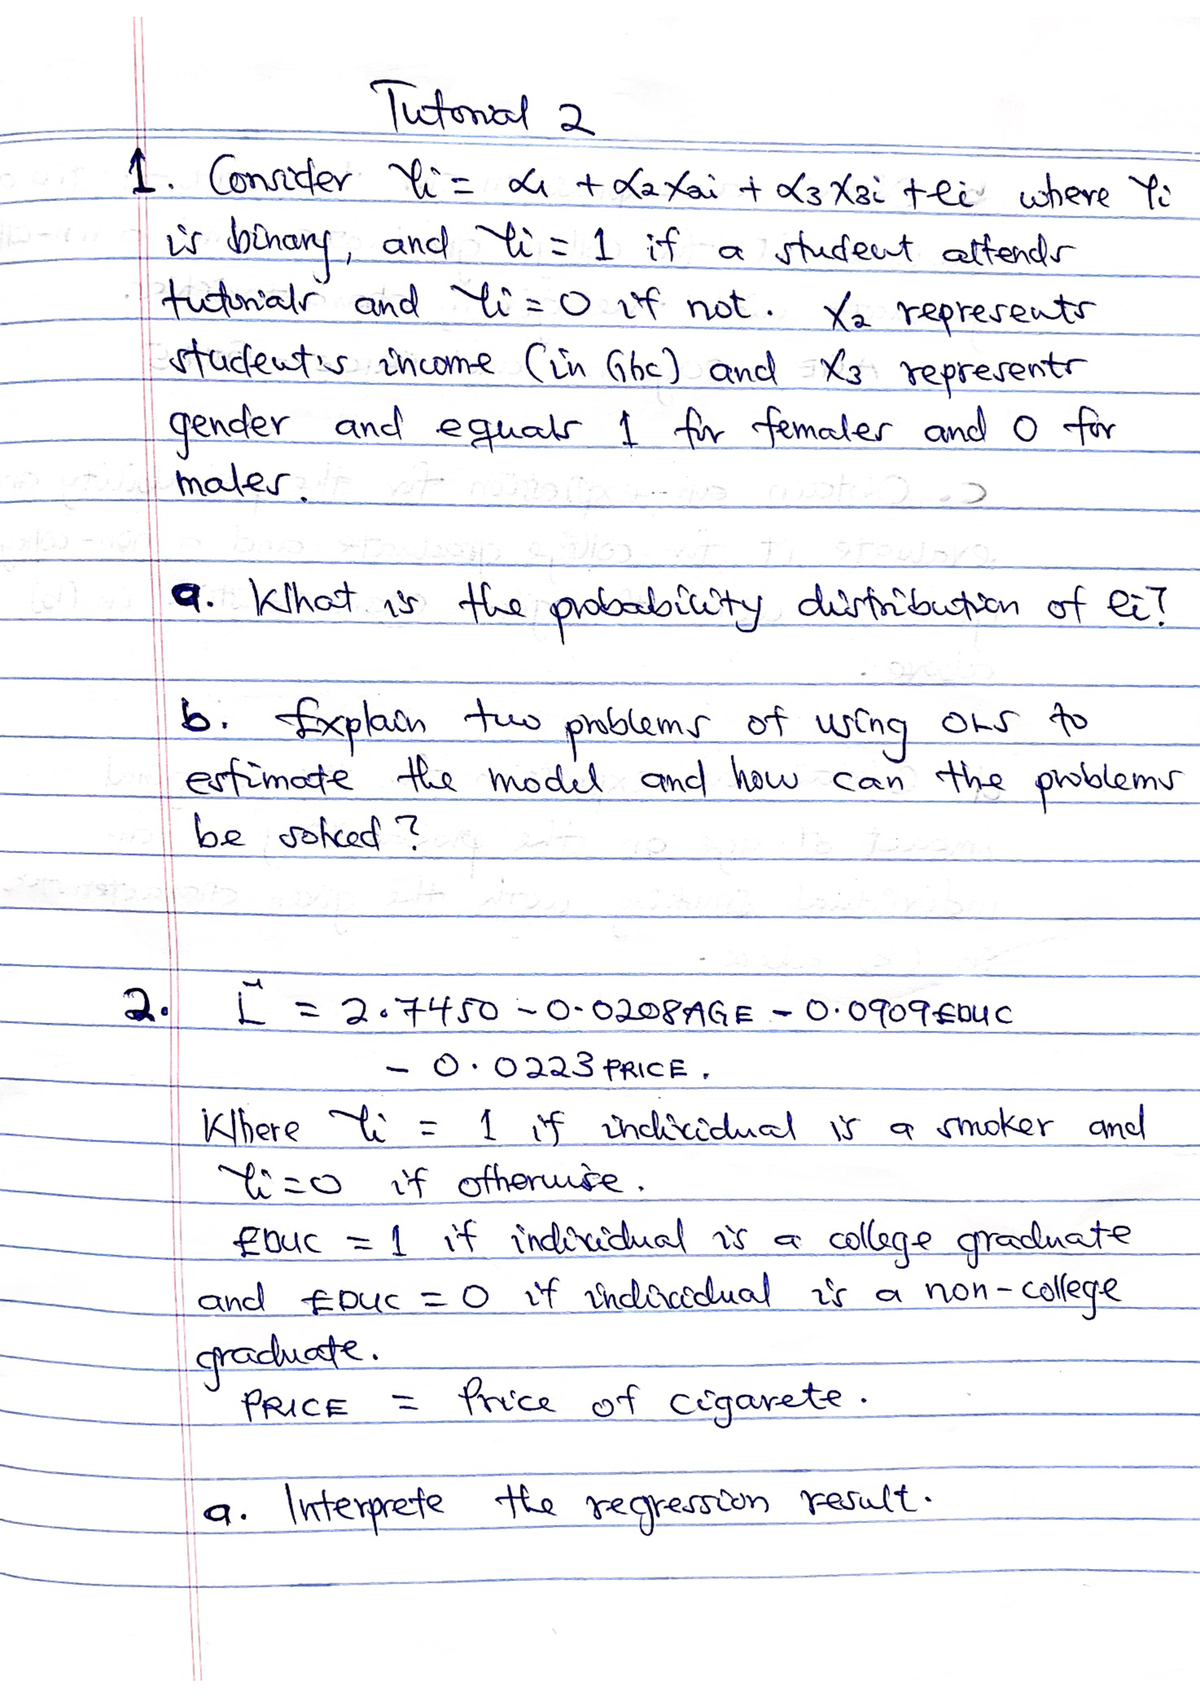 Tutorial 2
1. Consider Yi = α1 + α2X2i + α3X3i + ei where Yi
is binary, and Yi = 1 if a student attends
tutorials and Yi = 0 if not. X2 represents
student's income (in Ghc) and X3 represents
gender and equals 1 for females and 0 for
males.
a. What is the probability distribution of ei?
b. Explain two problems of using OLS to
estimate the model and how can the problems
be solved?
2. L̂ = 2.7450 - 0.0208AGE - 0.0909EDUC
- 0.0223 PRICE.
Where Yi = 1 if individual is a smoker and
Yi = 0 if otherwise.
EDUC = 1 if individual is a college graduate
and EDUC = 0 if individual is a non-college
graduate.
PRICE = Price of cigarete.
a. Interprete the regression result.